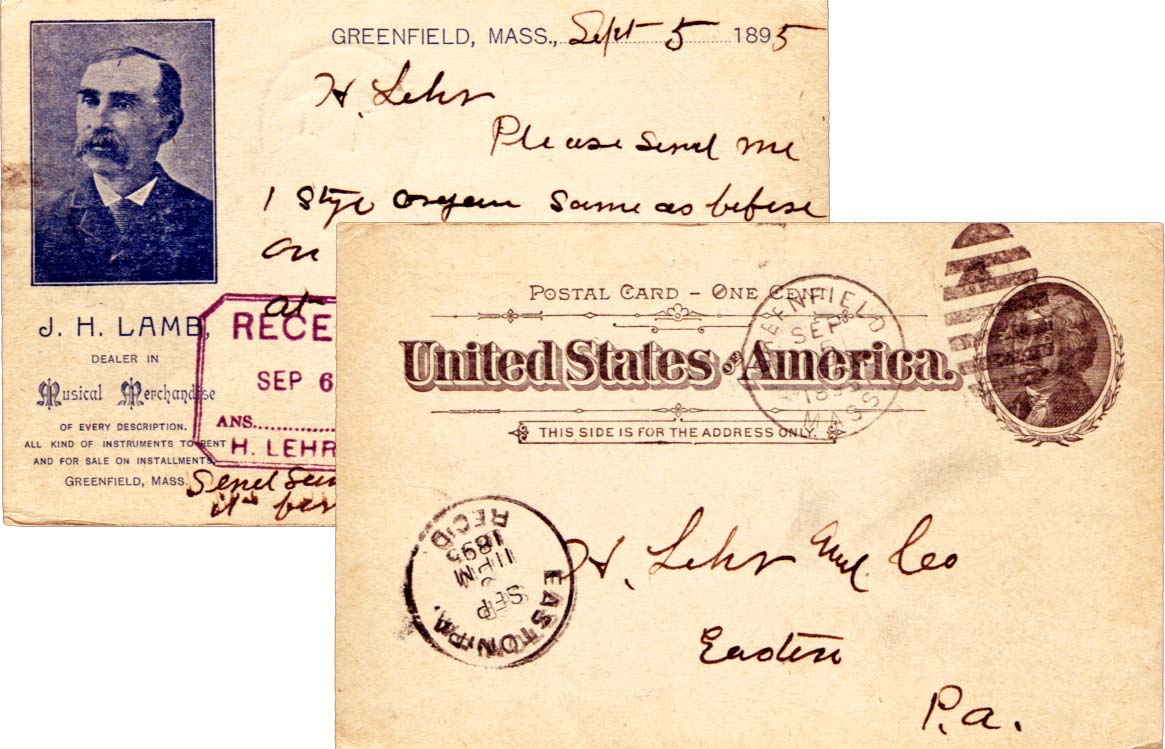 GREENFIELD, MASS., Sept 5 1895
H. Lehr
Please send me
1 Style organ same as before
on
at
J. H. LAMB,
DEALER IN
Musical Merchandise
OF EVERY DESCRIPTION.
ALL KIND OF INSTRUMENTS TO RENT
AND FOR SALE ON INSTALLMENTS.
GREENFIELD, MASS.
RECE
SEP 6
ANS.
H. LEHR
Send
it
POSTAL CARD – ONE CENT
United States of America.
THIS SIDE IS FOR THE ADDRESS ONLY.
GREENFIELD
SEP
5
MASS
H. Lehr and Co
Easton
P.a.
EASTON, PA.
SEP
11 PM
1895
REC'D